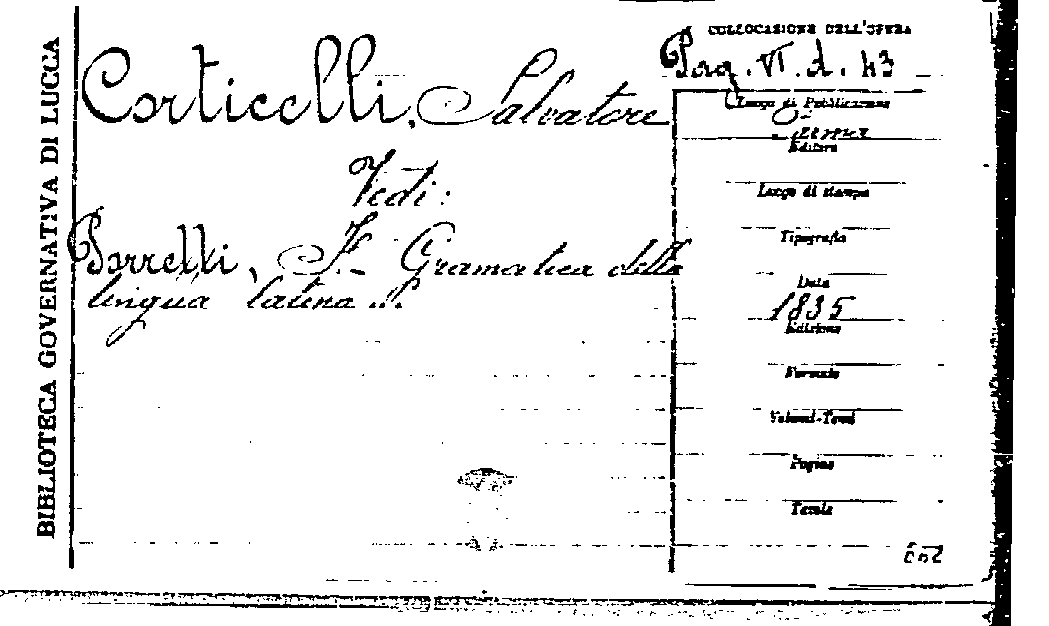 BIBLIOTECA GOVERNATIVA DI LUCCA
Corticelli, Salvatore
Vedi:
Porretti, F. - Gramatica della
lingua latina
COLLOCAZIONE DELL'OPERA
Pag. VI. d. 43
Luogo di Pubblicazione
Editore
Luogo di stampa
Tipografia
Data
1835
Edizione
Formato
Volumi-Tomi
Pagine
Tavole